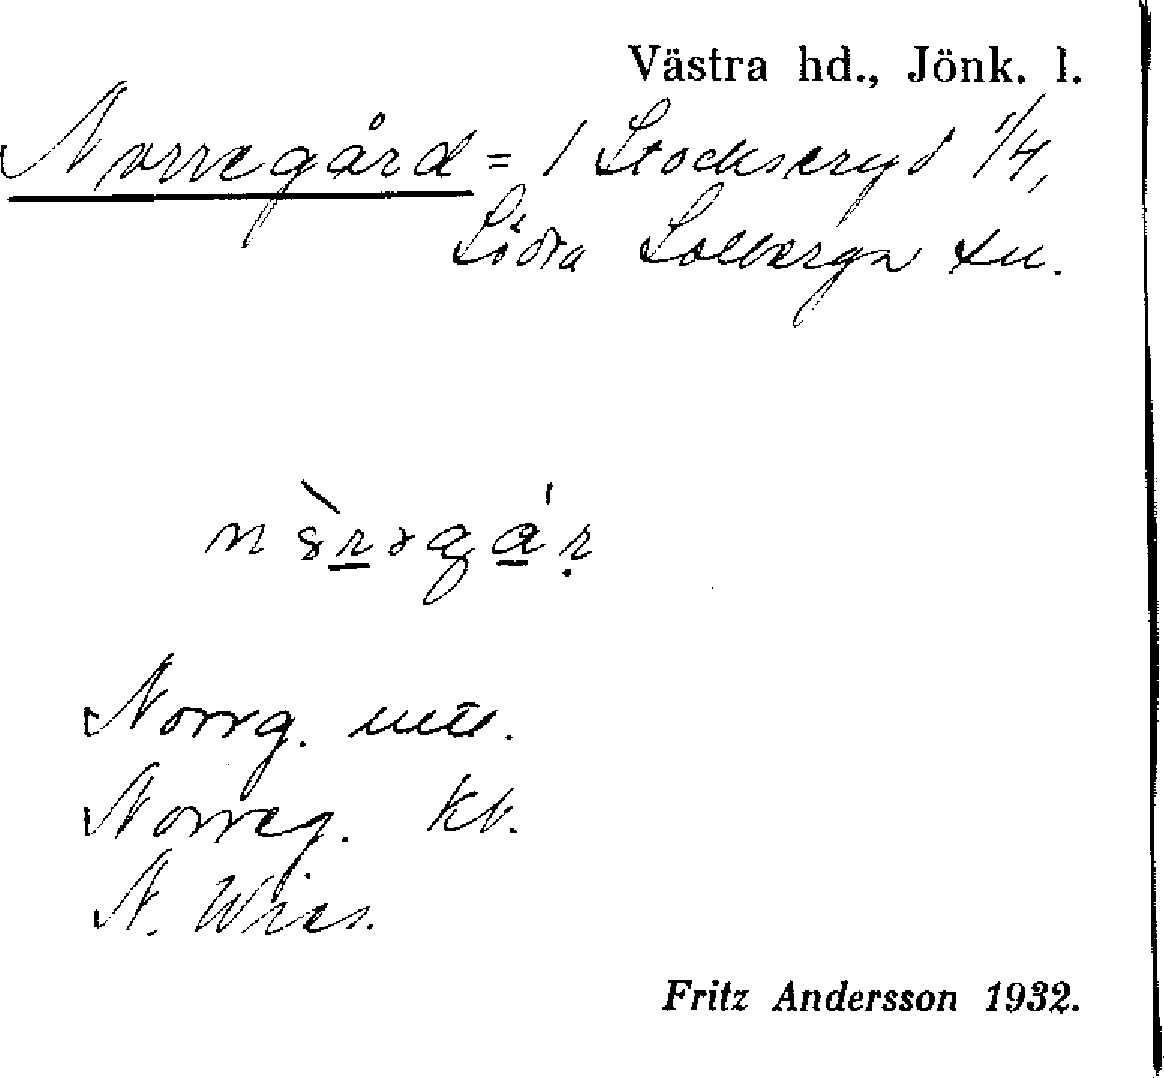 Västra hd., Jönk. l.
Norregård = 1 Stockseryd 1/4,
Södra Solberga sn.
Norrg. mtl.
Norreg. kb.
N. Wies.
Fritz Andersson 1932.